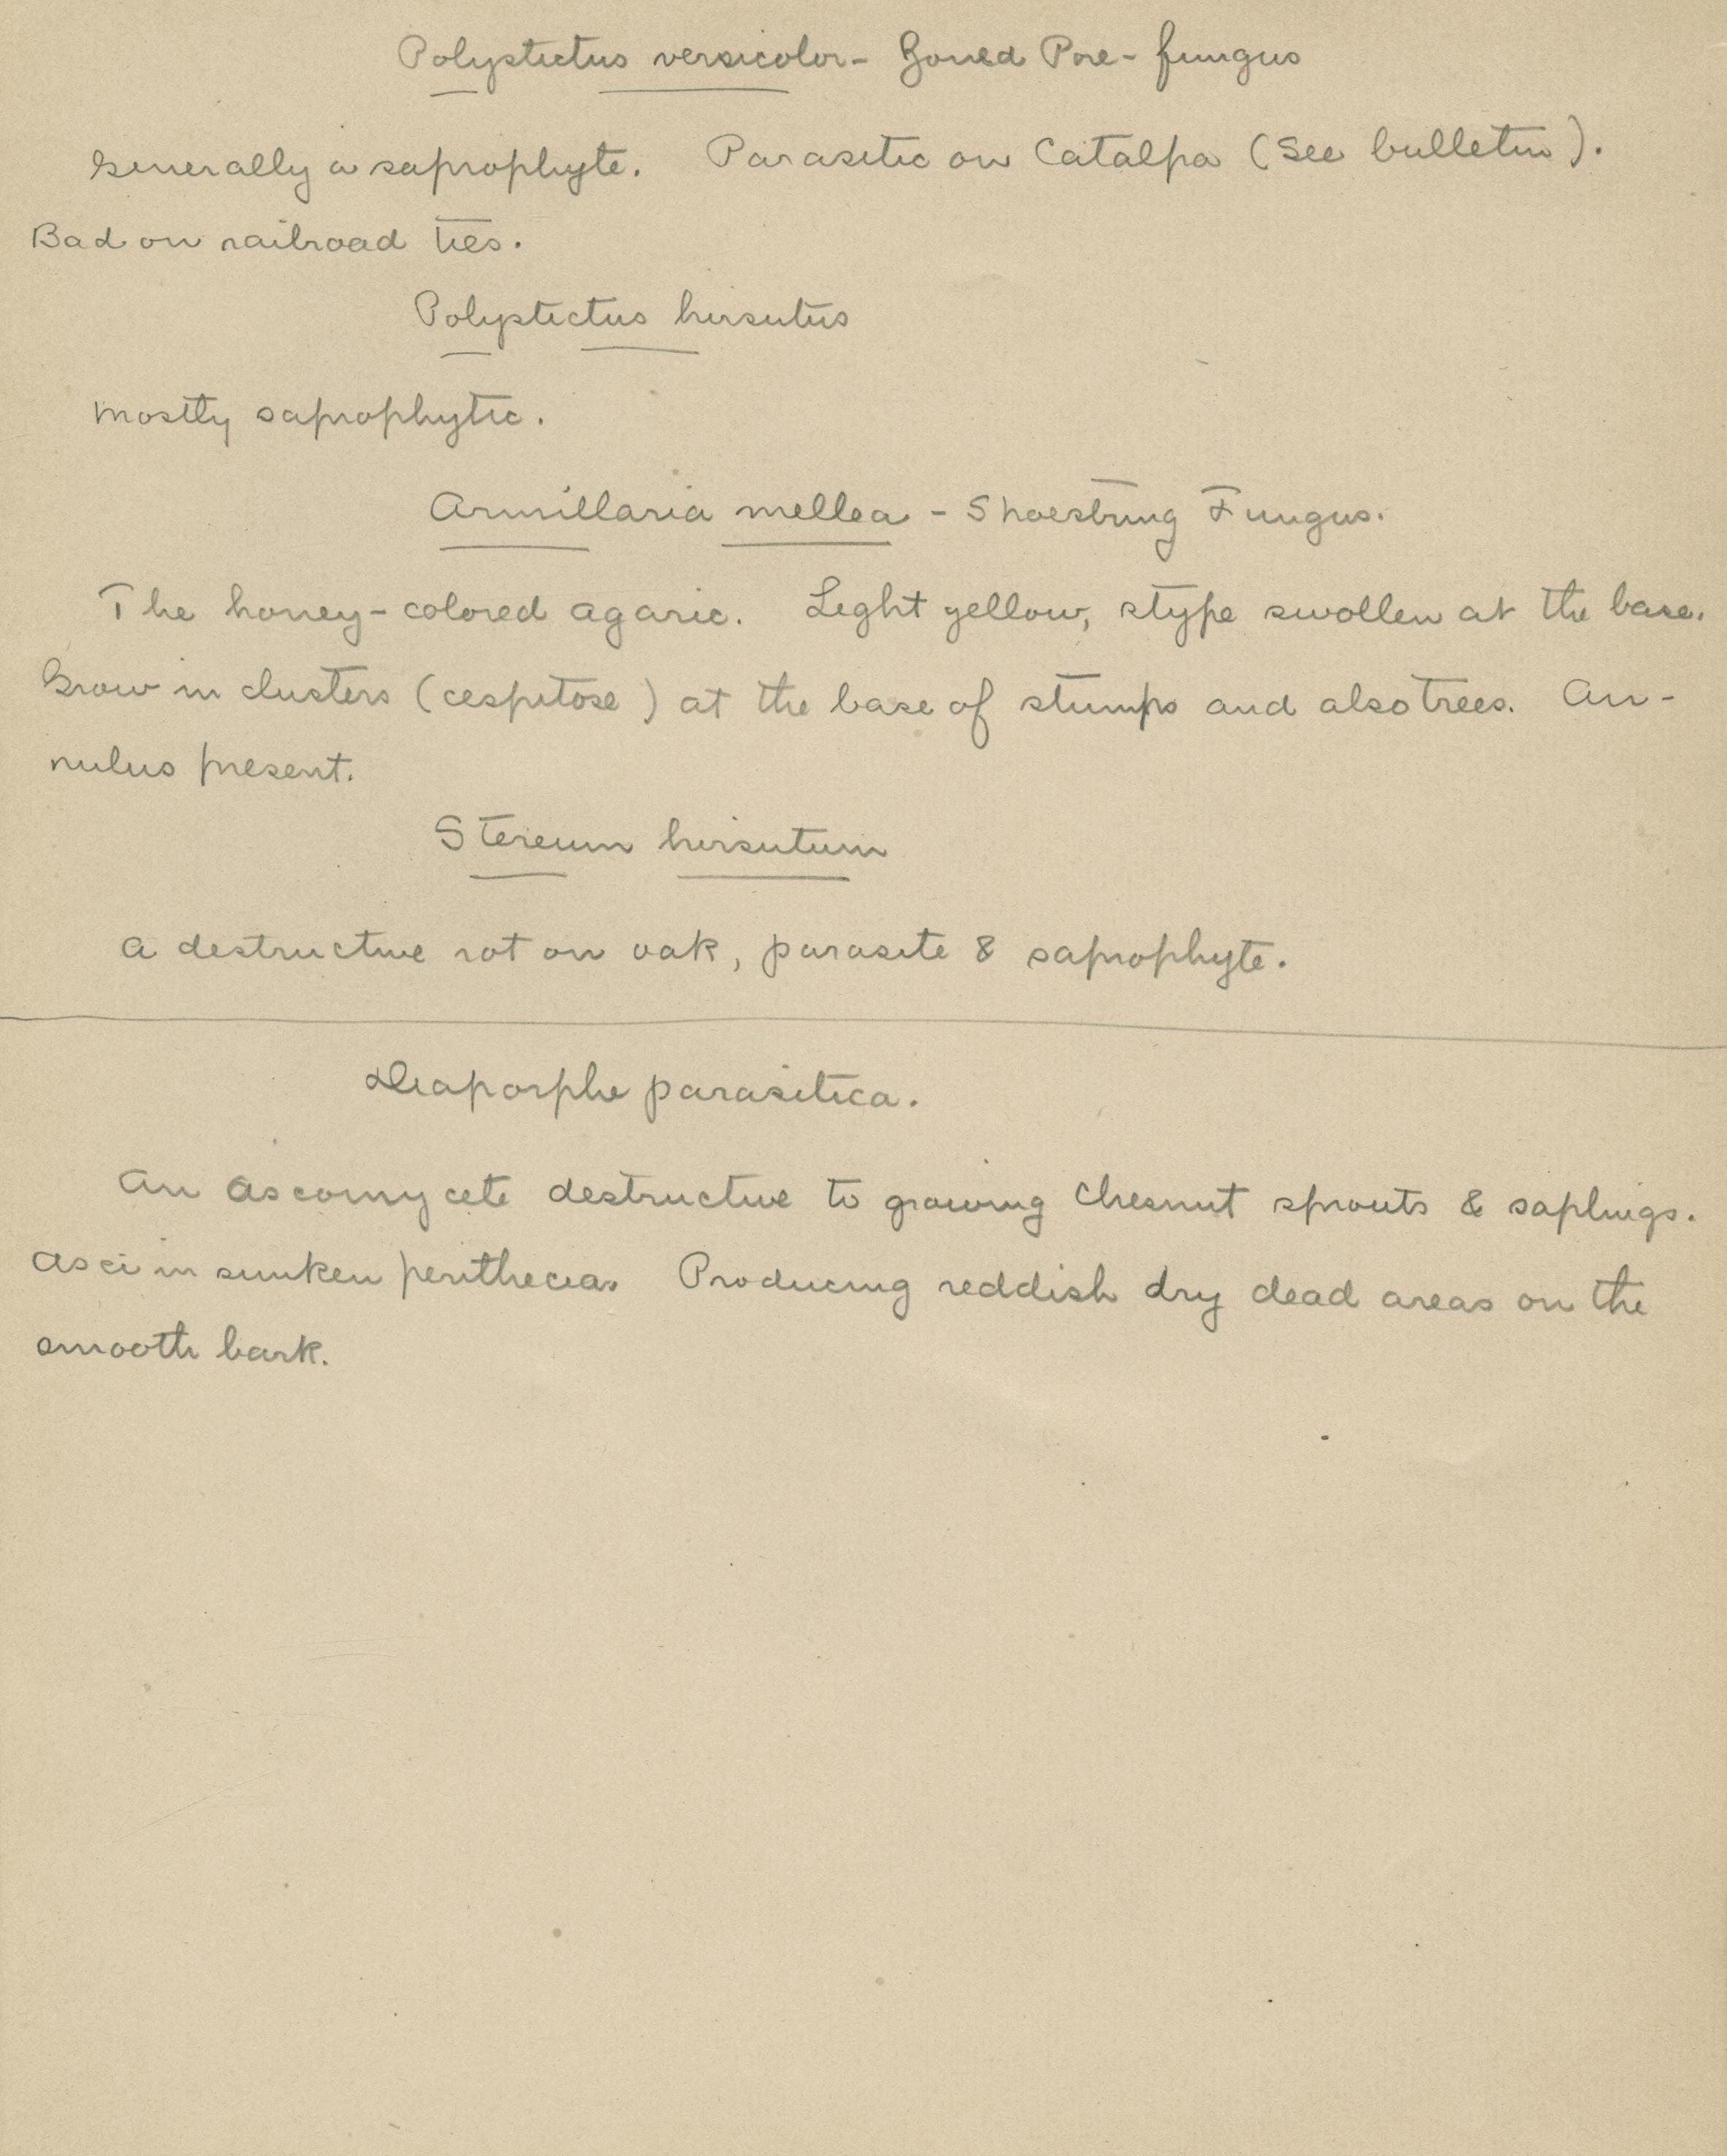 Polystictus versicolor - Zoned Pore-fungus
Generally a saprophyte. Parasitic on Catalpa (See bulletin).
Bad on railroad ties.
Polystictus hirsutus
Mostly saprophytic.
Armillaria mellea - Shoestring Fungus.
The honey-colored agaric. Light yellow, stype swollen at the base.
Grow in clusters (cespitose) at the base of stumps and also trees. An-
nulus present.
Stereum hirsutum
A destructive rot on oak, parasite & saprophyte.
Diaporphe parasitica.
An ascomycete destructive to growing Chesnut sprouts & saplings.
Asci in sunken perithecia. Producing reddish dry dead areas on the
smooth bark.